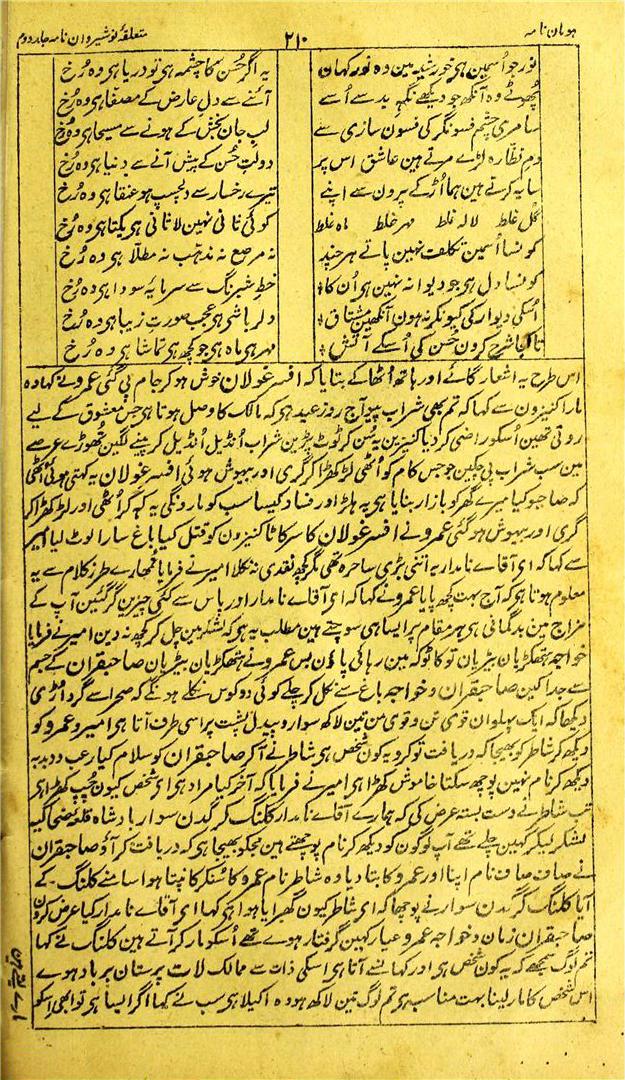 ہومان نامہ
۲۱۰
متعلقۂ نوشیروان نامہ جلد دوم
نور جو اُسمین ہی خورشید مین وہ نور کہان
یہ اگر حُسن کا چشمہ ہی تو دریا ہی وہ رُخ
پھوٹے وہ آنکھ جو دیکھے نگہِ بد سے اُسے
آئنے سے دلِ عارض کے مصفّا ہی وہ رُخ
سامری چشم فسونگر کی فسون سازی سے
لبِ جان بخش کے ہونے سے مسیحا ہی وہ رُخ
دمِ نظارہ لڑے مرتے ہین عاشق اس پر
دولتِ حُسن کے پیش آنے سے دنیا ہی وہ رُخ
سایہ کرتے ہین ہما اُڑ کے پرون سے اپنے
تیرے رخسار سے دلچسپ ہو عنقا ہی وہ رُخ
گل غلط لالہ غلط مہر غلط ماہ غلط
کوئی ثانی نہین لاثانی ہی یکتا ہی وہ رُخ
کونسا اُسمین تکلف نہین پاتے ہر چند
نہ مرصع نہ مذہب نہ مطلّا ہی وہ رُخ
کونسا دل ہی جو دیوانہ نہین ہی اُن کا
خطِ شبرنگ سے سرمایۂ سودا ہی وہ رُخ
اُسکی دیدار کی کیونکر نہ ہون آنکھین مشتاق
دلربا شی ہی عجب صورتِ زیبا ہی وہ رُخ
تا کجا شرح کرون حُسن کی اُسکے آتش
مہر ہی ماہ ہی جو کچھ ہی تماشا ہی وہ رُخ
اس طرح یہ اشعار گائے اور ہاتھ اُٹھا کے بتایا کہ افسر غولان خوش ہو کر جام پی گئی عمرو نے کہا وہ
مارا کنیزون سے کہا کہ تم بھی شراب پیو آج روز عید ہی کہ مالک کا وصل ہوتا ہی جس معشوق کے لیے
روتی تھین اُسکو راضی کر دیا کنیزین یہ سن کر ٹوٹ پڑین شراب اُنڈیل اُنڈیل کر پینے لگین تھوڑے عرصے
مین سب شراب پی چکین جو جس کام کو اُٹھی لڑکھڑا کر گری اور بیہوش ہوئی افسر غولان یہ کہتی ہوئی اُٹھی
کہ صاحبو کیا میرے گھر کو بازار بنایا ہی یہ ہلڑ اور فساد کیسا سب کو مارونگی یہ کہہ کر اُٹھی اور لڑکھڑا کر
گری اور بیہوش ہو گئی عمرو نے افسر غولان کا سر کاٹا کنیزون کو قتل کیا باغ سارا لوٹ لیا امیر
سے کہا کہ ای آقاے نامدار یہ اتنی بڑی ساحرہ تھی مگر کچھ نقدی نہ نکلا امیر نے فرمایا تمھارے طرز کلام سے یہ
معلوم ہوتا ہی کہ آج بہت کچھ پایا عمرو نے کہا کہ ای آقاے نامدار اور پاس سے کتنی چیزین گر گئین آپ کے
مزاج مین بدگمانی ہی ہر مقام پر ایسا ہی سوچتے ہین مطلب یہ ہو کہ لشکر مین چل کر کچھ نہ دین امیر نے فرمایا
خواجہ ہتھکڑیان بیڑیان تو کاٹو کہ مین رہائی پاؤن بس عمرو نے ہتھکڑیان بیڑیان صاحبقران کے جسم
سے جدا کین صاحبقران و خواجہ باغ سے نکل کر چلے کوئی دو کوس نکلے ہونگے کہ صحرا سے گرد اُڑی
دیکھا کہ ایک پہلوان قوی تن و قوی من تین لاکھ سوار و پیدل پشت پر اسی طرف آتا ہی امیر و عمرو کو
دیکھ کر شاطر کو بھیجا کہ دریافت تو کرو یہ کون شخص ہی شاطر نے آکر صاحبقران کو سلام کیا رعب و دبدبہ
دیکھ کر نام نہین پوچھ سکتا خاموش کھڑا ہی امیر نے فرمایا کہ آخر کیا مراد ہی ای شخص کیون چپ کھڑا ہی
تب شاطر نے دست بستہ عرض کی کہ ہمارے آقاے نامدار کلنگ کرگدن سوار بادشاہ قلعۂ ضحاکیہ
لشکر لیکر کہین چلے تھے آپ لوگون کو دیکھ کر نام پوچھتے ہین مجھکو بھیجا ہی کہ دریافت کر آؤ صاحبقران
نے صاف صاف نام اپنا اور عمرو کا بتا دیا وہ شاطر نام عمرو کا سُنکر کانپتا ہوا سامنے کلنگ کے
آیا کلنگ کرگدن سوار نے پوچھا کہ ای شاطر کیون گھبرایا ہوا ہی کہا ای آقاے نامدار کیا عرض کرون
صاحبقران زمان و خواجہ عمرو عیار کہین گرفتار ہوے تھے اُسکو مار کر آتے ہین کلنگ نے کہا
تم لوگ سمجھے کہ یہ کون شخص ہی اور کہانسے آتا ہی اسکی ذات سے ممالک لات پرستان برباد ہوے
اس شخص کا مار لینا بہت مناسب ہی تم لوگ تین لاکھ ہو وہ اکیلا ہی سب نے کہا اگر ایسا ہی تو ابھی اسکو